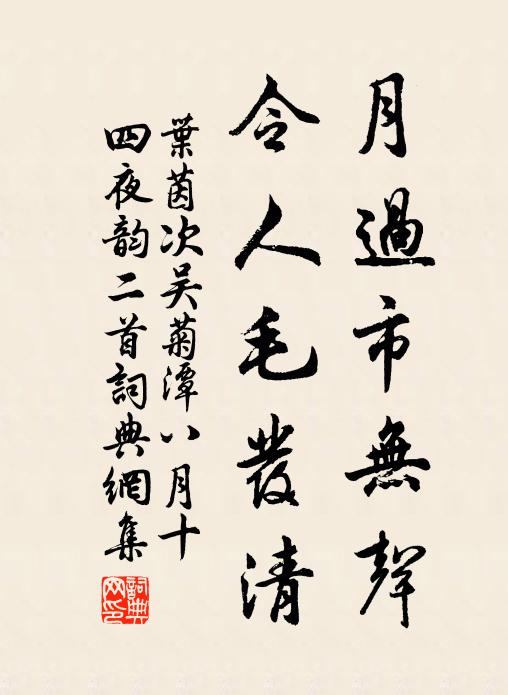 月過市無聲
令人毛發清
葉茵次吴菊潭八月十
四夜韵二首詞典網集
詞典
网印